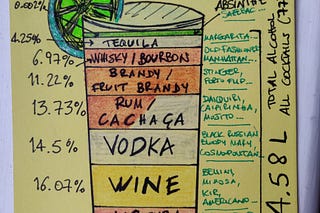 0.002%
ABSINTHE
SAZERAC...
4.25%
TEQUILA
MARGARITA...
6.97%
WHISKY/BOURBON
OLD FASHIONED
MANHATTAN...
11.22%
BRANDY/
FRUIT BRANDY
STINGER,
PORTO FLIP...
13.73%
RUM/
CACHAÇA
DAIQUIRI,
CAIPIRINHA,
MOJITO...
14.5%
VODKA
BLACK RUSSIAN
BLOODY MARY,
COSMOPOLITAN...
16.07%
WINE
BELLINI,
MIMOSA,
KIR,
AMERICANO...
4.58 L
TOTAL ALCOHOL
ALL COCKTAILS (77